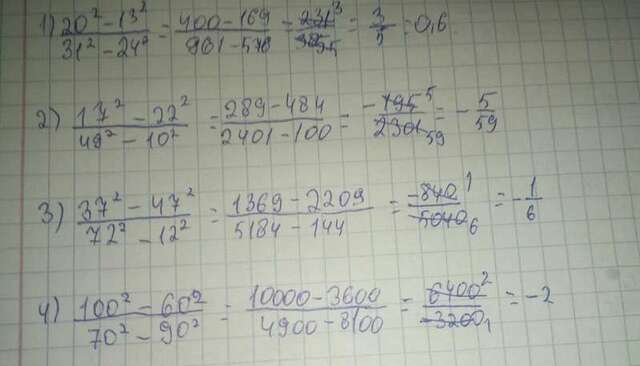 1) (20² − 13²)/(31² − 24²) = (400 − 169)/(961 − 576) = 231³/385₅ = 3/5 = 0,6
2) (17² − 22²)/(49² − 10²) = (289 − 484)/(2401 − 100) = −195⁵/2301₅₉ = −5/59
3) (37² − 47²)/(72² − 12²) = (1369 − 2209)/(5184 − 144) = −840¹/−5040₆ = −1/6
4) (100² − 60²)/(70² − 90²) = (10000 − 3600)/(4900 − 8100) = 6400²/−3200₁ = −2